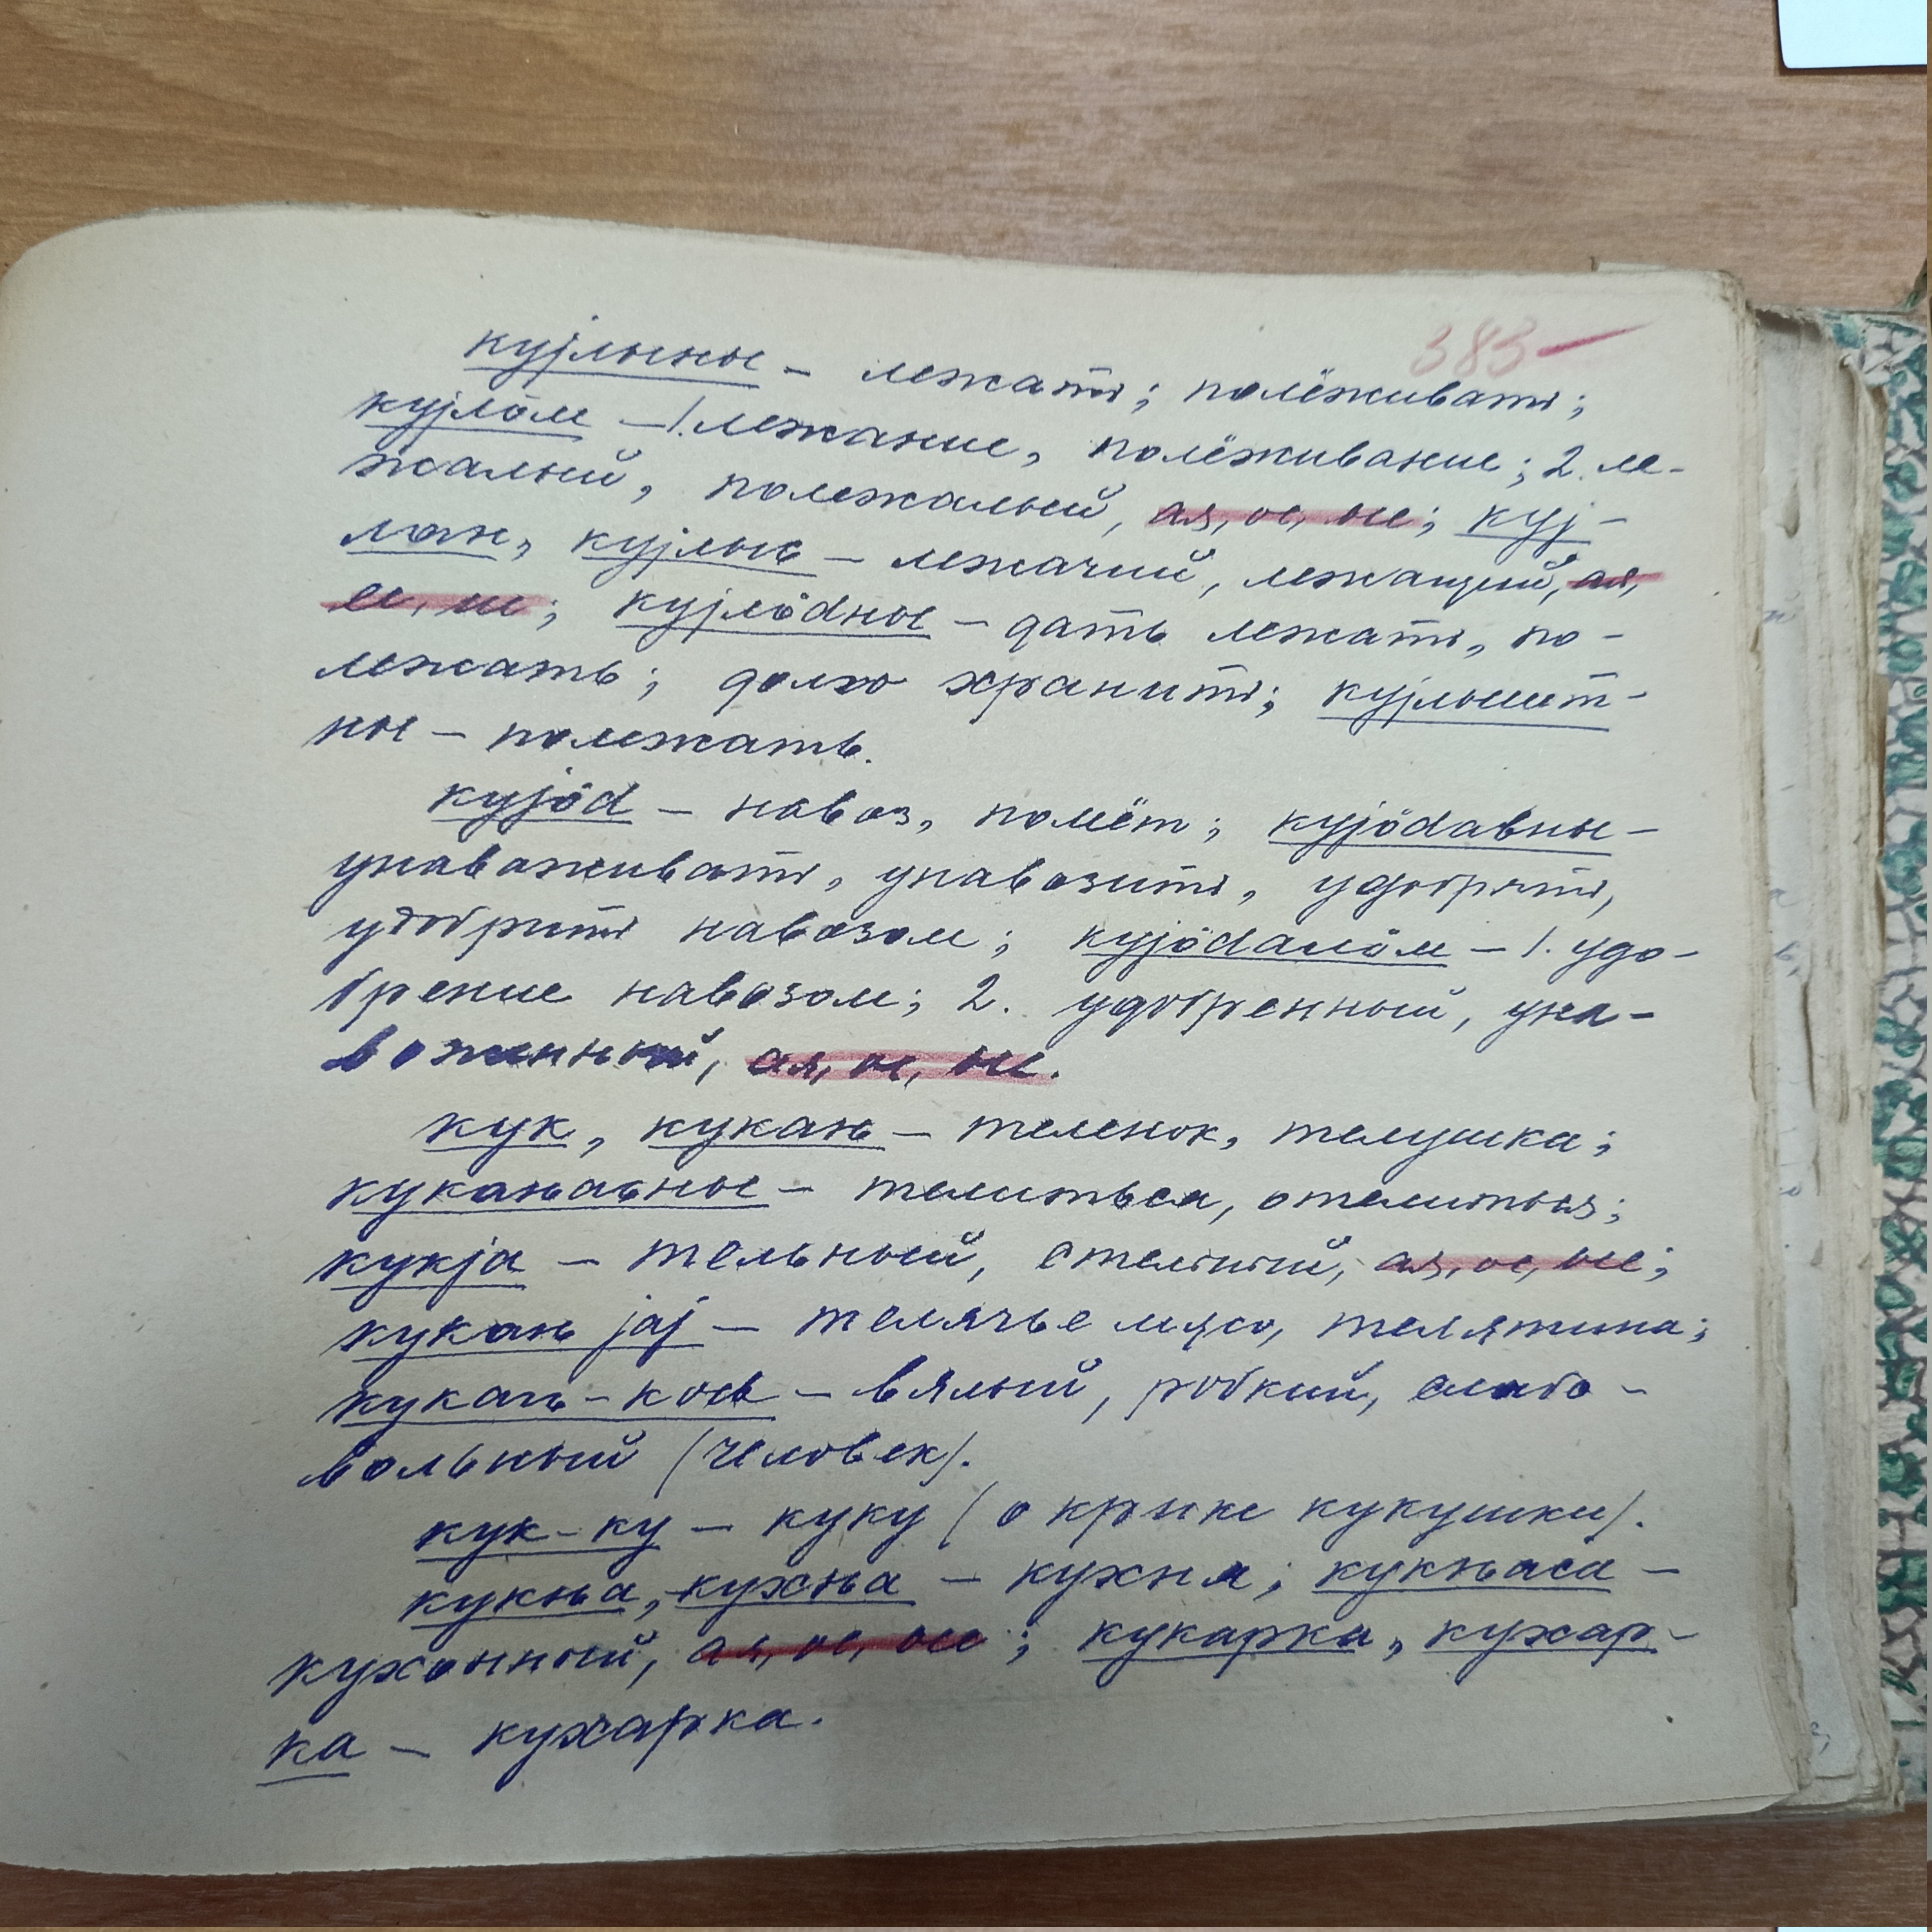 383
кујлыны – лежать; полёживать;
кујлӧм – 1. лежание, полёживание; 2. ле-
жалый, полежалый, ая, ое, ые; куј-
лан, кујлыс – лежачий, лежащий, ая,
ее, ие; кујлӧdны – дать лежать, по-
лежать; долго хранить; кујлышт-
ны – полежать.
кујӧd – навоз, помёт; кујӧdавны –
унаваживать, унавозить, удобрять,
удобрить навозом; кујӧdалӧм – 1. удо-
брение навозом; 2. удобренный, уна-
воженный, ая, ое, ые.
кук, кукань – теленок, телушка;
куканьавны – телиться, отелиться;
кукја – тельный, стельный, ая, ое, ые;
кукань јај – телячье мясо, телятина;
кукань-кос – вялый, робкий, слабо-
вольный (человек).
кук-ку – куку (о крике кукушки).
кукња, кухња – кухня; кукњаса –
кухонный, ая, ое, ые; кукарка, кухар-
ка – кухарка.